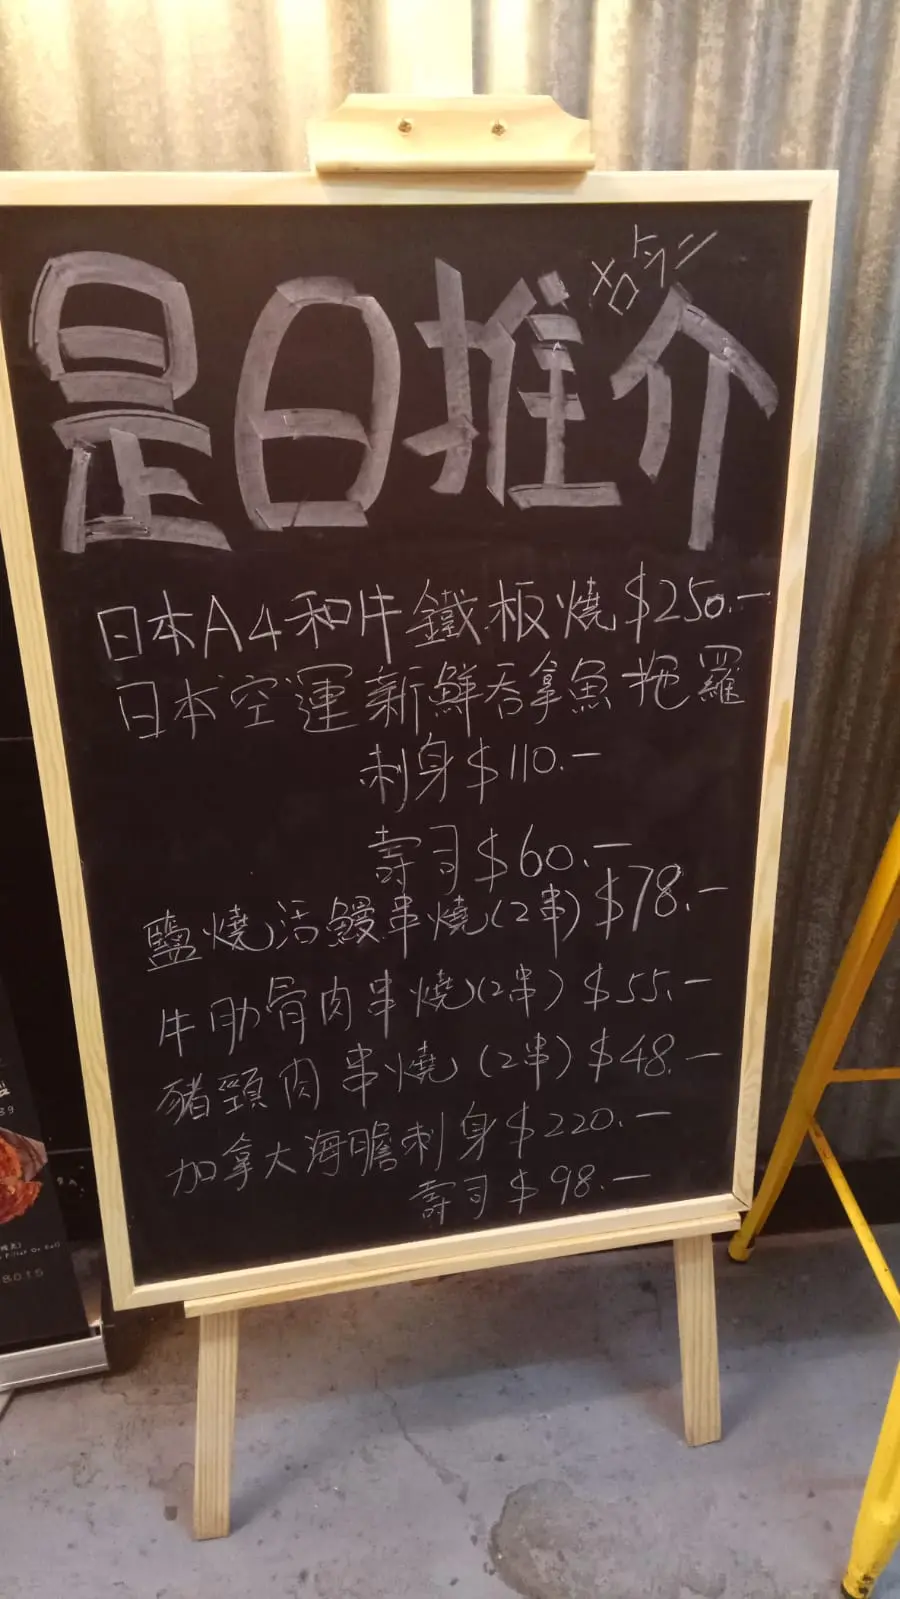 是日推介
日本A4和牛鐵板燒$250.-
日本空運新鮮吞拿魚拖羅
刺身$110.-
壽司$60.-
鹽燒活鰻串燒(2串)$78.-
牛肋骨肉串燒(2串)$55.-
豬頸肉串燒(2串)$48.-
加拿大海膽刺身$220.-
壽司$98.-
8015